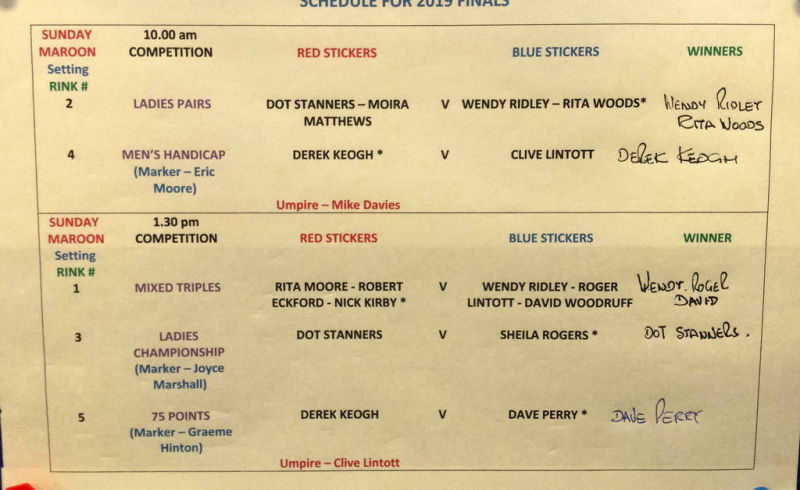 SCHEDULE FOR 2019 FINALS
SUNDAY 10.00 am
MAROON COMPETITION RED STICKERS BLUE STICKERS WINNERS
Setting
RINK #
2 LADIES PAIRS DOT STANNERS – MOIRA V WENDY RIDLEY – RITA WOODS* WENDY RIDLEY
MATTHEWS RITA WOODS
4 MEN'S HANDICAP DEREK KEOGH * V CLIVE LINTOTT DEREK KEOGH
(Marker – Eric
Moore)
Umpire – Mike Davies
SUNDAY 1.30 pm
MAROON COMPETITION RED STICKERS BLUE STICKERS WINNER
Setting
RINK #
1 MIXED TRIPLES RITA MOORE - ROBERT V WENDY RIDLEY - ROGER WENDY. ROGER
ECKFORD - NICK KIRBY * LINTOTT - DAVID WOODRUFF DAVID
3 LADIES DOT STANNERS V SHEILA ROGERS * DOT STANNERS.
CHAMPIONSHIP
(Marker – Joyce
Marshall)
5 75 POINTS DEREK KEOGH V DAVE PERRY * DAVE PERRY
(Marker – Graeme
Hinton)
Umpire – Clive Lintott